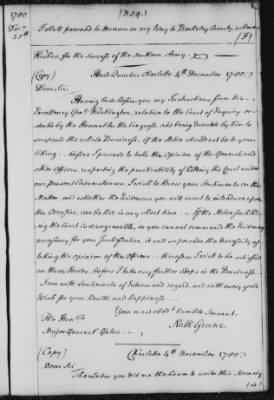 1780
Decr
25th
(859.)
I shall proceed to Hanover on my Way to Berkeley County,
Wishes, for the Success of the Southern Army.
(Copy) Head Quarters Charlotte 4th December 1780.
Dear Sir
Having laid before you my Instructions from his
Excellency Genl Washington, relative to the Court of Enquiry or-
dered by the Honorable the Congress, and being directed by him to
respond the whole Business, if the Mode should not be to your
liking: before I proceed to take the Opinion of the General and
other Officers, respecting the practicability of holding the Court under
our present Circumstances, I wish to know your Sentiments on the
Matter, and whether the Evidences you will want to introduce upon
the Occasion can be had in any short time. If the Mode for hold-
ing the Court is disagreeable, or you cannot command the Evidence
necessary for your Justification, it will supersede the necessity of
taking the opinion of the Officers therefore I wish to be satisfied
on these Heads, before I take any further Steps in the Business.
I am with Sentiments of Esteem and regard, and with every good
Wish for your Health and happiness
Your most obedt humble Servant.
Nath Greene
The Honble
Major General Gates
(Copy) Charlotte 4th December 1780.
Dear Sir
The Letter you did me the honor to write this Morning